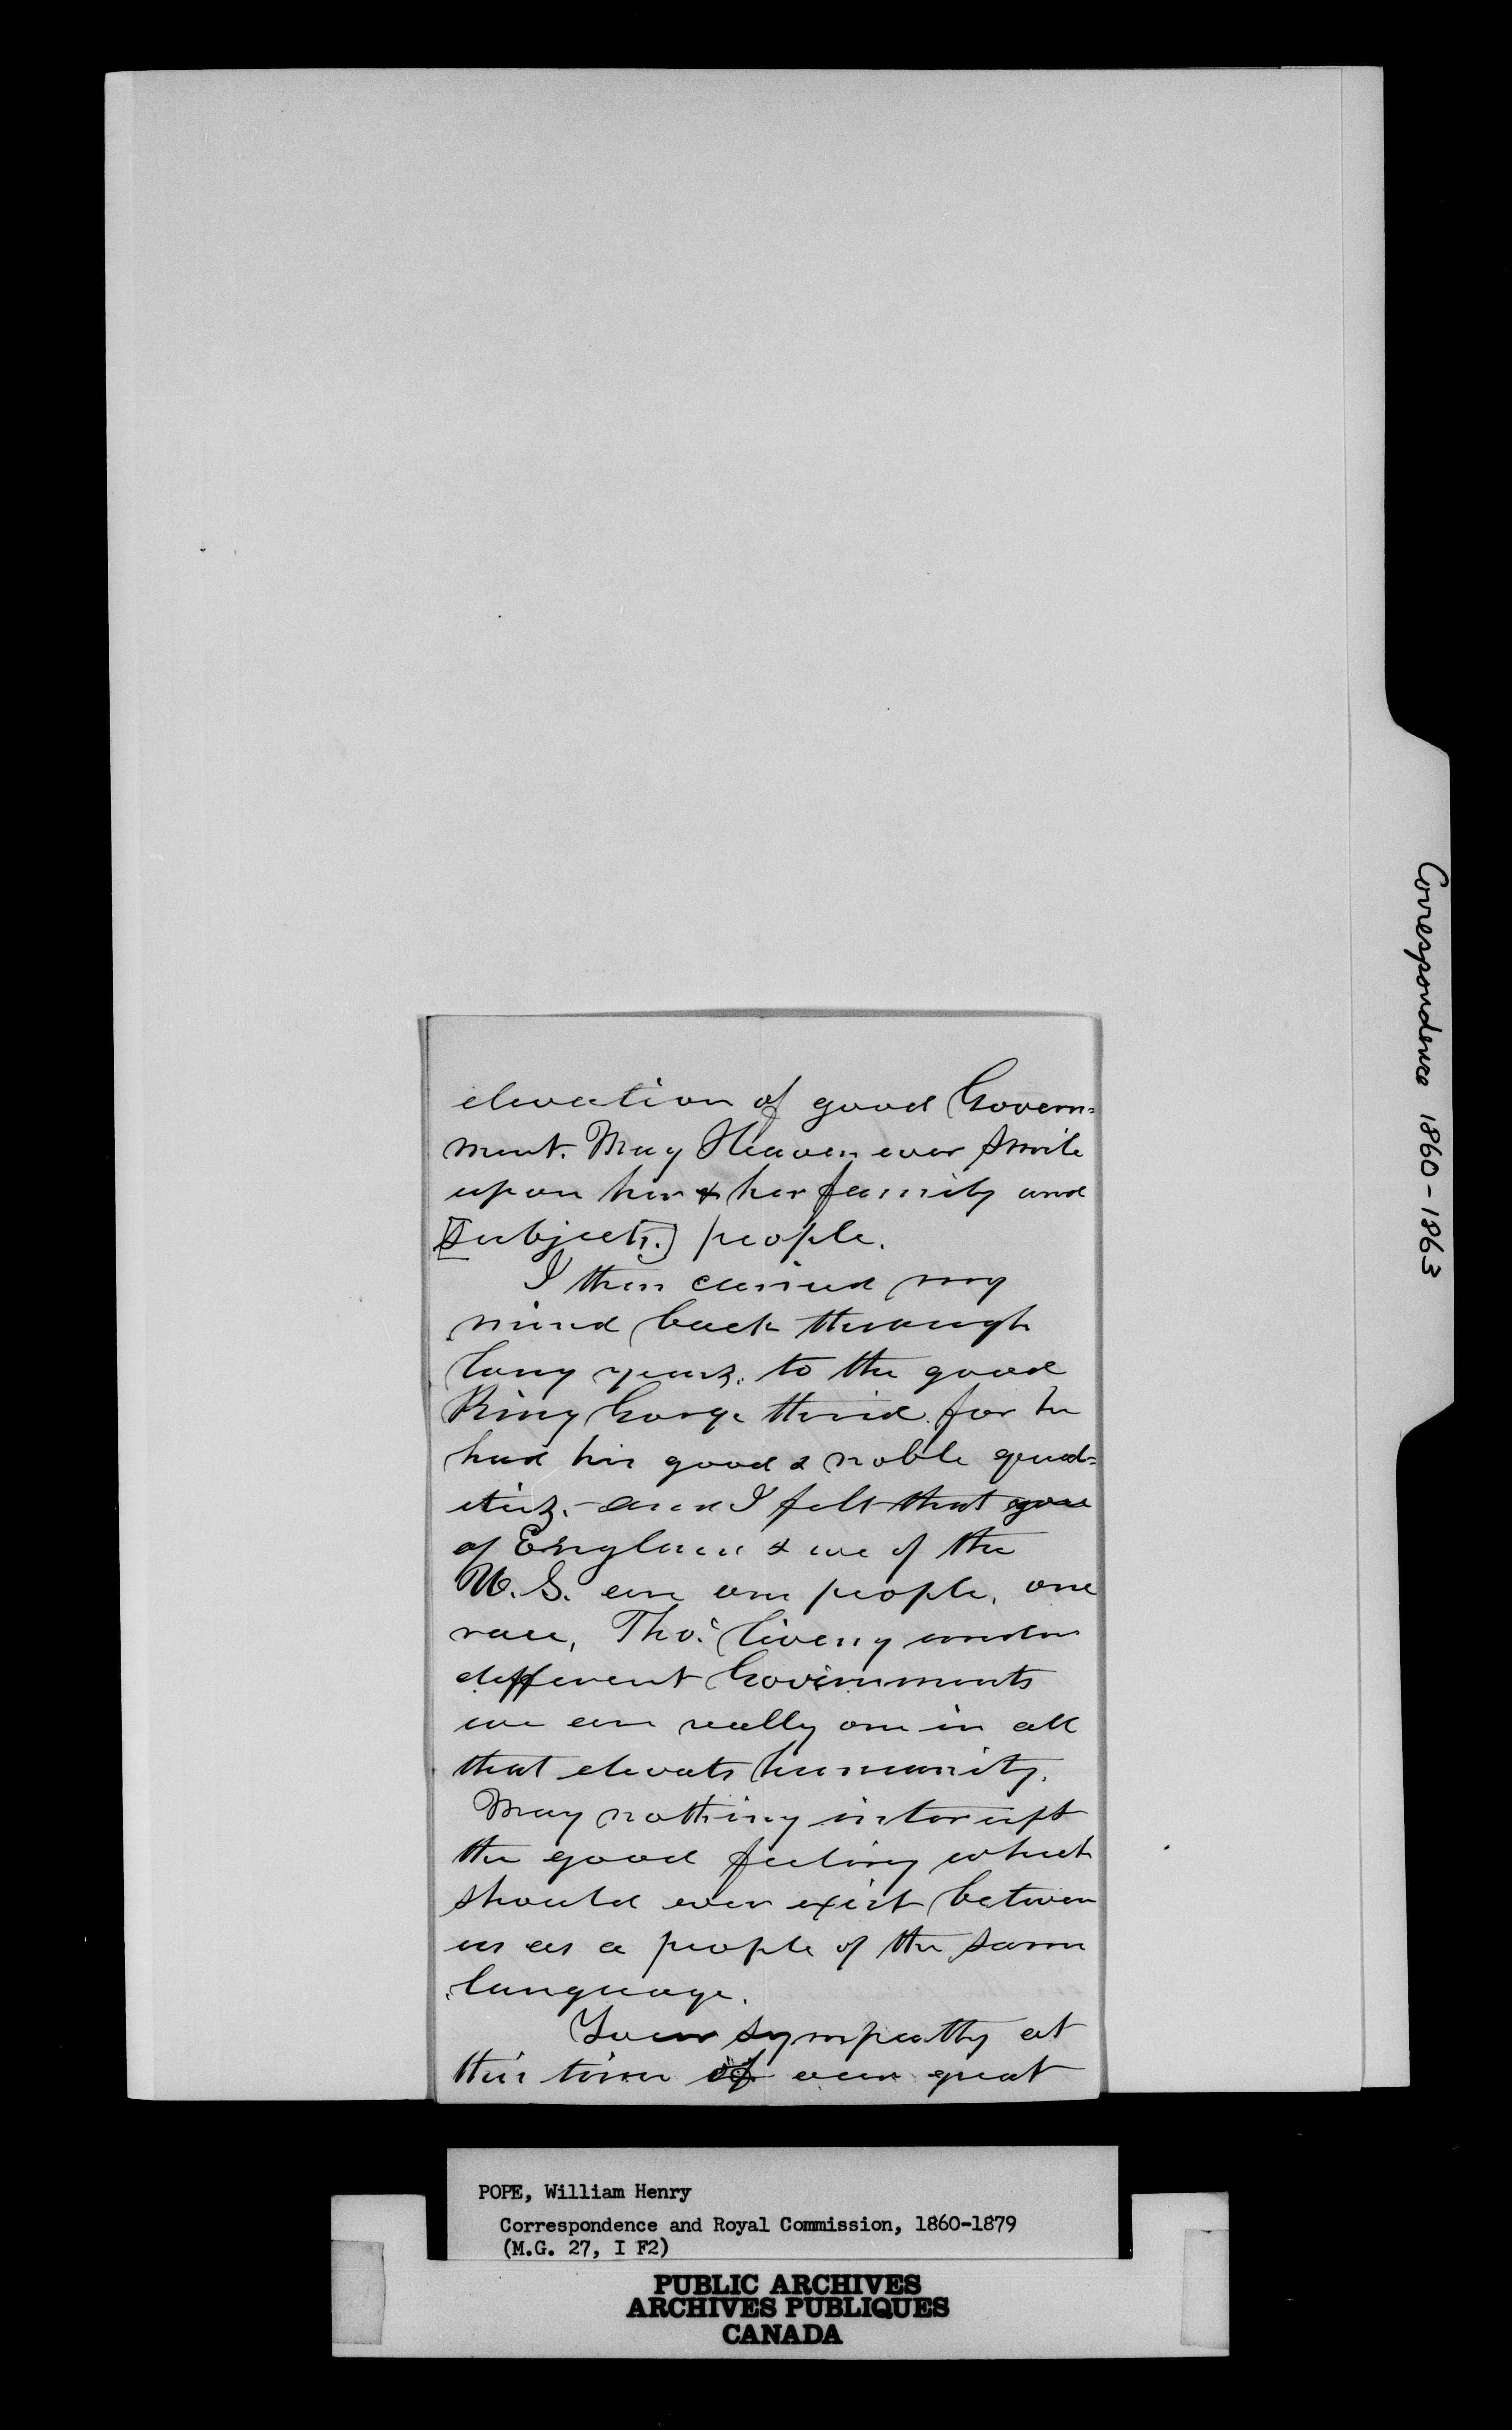 elevation of good Govern=
ment. May Heaven ever smile
upon her & her family and
[subjects.] people.
I then carried my
mind back through
long years. to the good
King George third. for he
had his good & noble qual=
itiz. - and I felt that you
of England & we of the
U.S. are one people, one
race, Tho' living under
different Governments
we are really one in all
that elevats humanity.
May nothing interupt
the good feeling which
should ever exist between
us as a people of the same
language.
Your sympathy at
this time of our great
Correspondence 1860-1863
POPE, William Henry
Correspondence and Royal Commission, 1860-1879
(M.G. 27, I F2)
PUBLIC ARCHIVES
ARCHIVES PUBLIQUES
CANADA